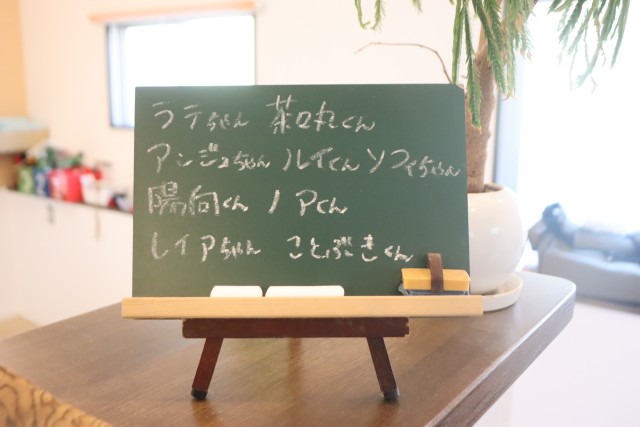 ラテちゃん 茶々丸くん
アンジュちゃん ルイくん ソフィちゃん
陽向くん ノアくん
レイアちゃん ことぶきくん